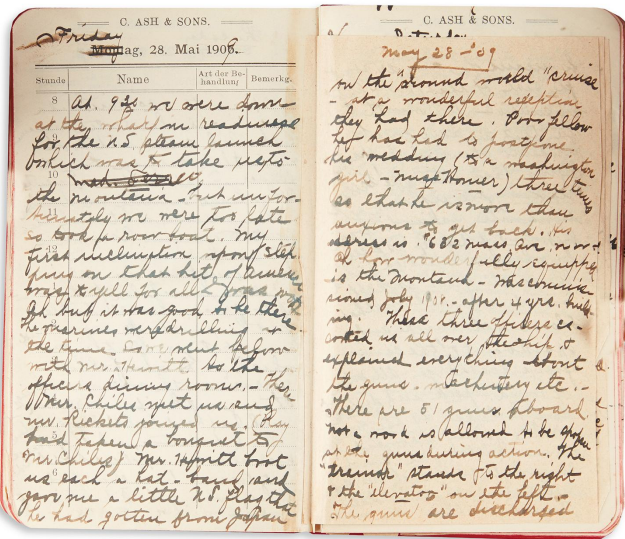 C. ASH & SONS.
Friday
tag, 28. Mai 1909.
Stunde Name Art der Be-handlung Bemerkg.
8 At 9 30 we were down
at the wharf in readiness
for the U.S. steam launch
which was to take us to
10
the Montana - but unfor-
tunately we were too late
so took a row boat. My
12
first inclination upon step
ping on that bit of America
was to yell for all I was worth
but it was good to be there
The marines were drilling
the time. so we went below
with Mr. Hewitt to the
officers dining room. - There
Mr. Chiles met us and
Mr. Rickets joined us. (May
had taken a bouquet to
Mr. Chiles) Mr. Hewitt brot
us each a hat-band and
gave me a little U.S. flag that
he had gotten from Japan
C. ASH & SONS.
Saturday
May 28 - '09
on the "around world" cruise
- at a wonderful reception
they had there. Poor fellow
he has had to postpone
his wedding (to a Washington
girl - Miss Homer) three times
so that he is more than
anxious to get back. His
address is "632 Mass. Ave. n.w.
Oh how wonderfully equipped
is the Montana - was commis
sioned July '08 - after 4 yrs. buil-
ing. These three officers es-
corted us all over the ship &
explained everything about
the guns. machinery etc. -
There are 51 guns aboard
not a word is allowed to be spoken
at the guns during action. The
"trainor" stands to the right
& the "elevator" on the left -
The guns are discharged